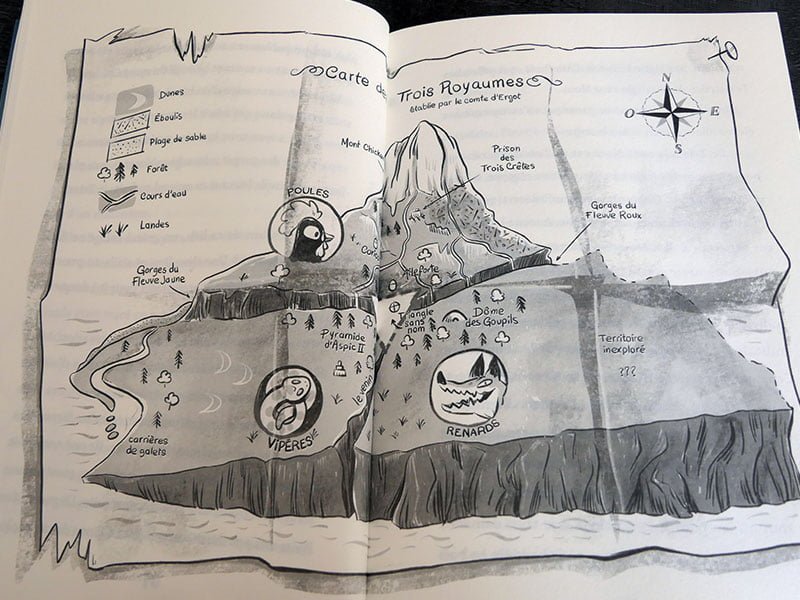 Carte de Trois Royaumes
établie par le comte d'Ergot
Dunes
Éboulis
Plage de sable
Forêt
Cours d'eau
Landes
N
O
E
S
Mont Chicke
Prison
des
Trois Crêtes
POULES
Gorges du
Fleuve Roux
Gorges du
Fleuve Jaune
Triangle
sans
nom
Dôme
des Goupils
Pyramide
d'Aspic II
le venin
Territoire
inexploré
???
VIPÈRES
RENARDS
carrières
de galets